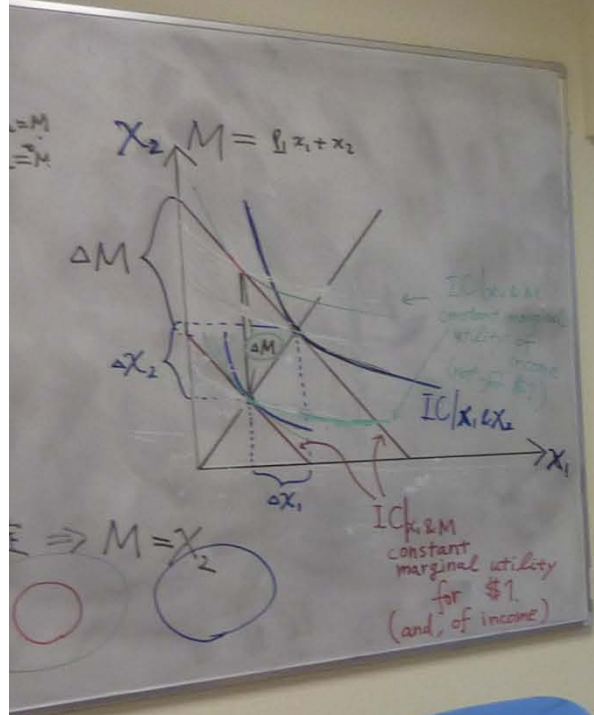 =M
=M
X₂ M = P₁x₁ + x₂
ΔM
ΔM
ΔX₂
IC|x₁&M
constant marginal
utility of
income
IC|x₁&x₂
X₁
ΔX₁
IC|x₁&M
constant
marginal utility
for $1.
(and, of income)
⇒ M = X₂